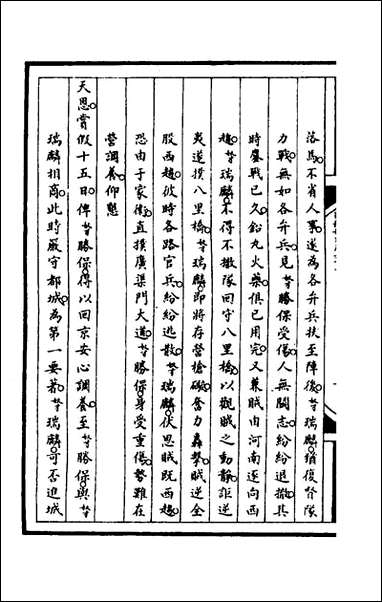 落馬不省人事遂為各弁兵扶至陣後奴才瑞麟猶復督隊
力戰無如各弁兵見奴才勝保受傷人無鬪志紛紛退撤其
時鏖戰已久鉛丸火藥俱已用完又兼賊由河南逐向西
趨奴才瑞麟不得不撤隊回守八里橋以觀賊之動靜詎逆
夷逕撲八里橋奴才瑞麟即將存營槍礮奮力轟擊賊逆全
股西趨彼時各路官兵紛紛逃散奴才瑞麟伏思賊既西趨
恐由于家衛直撲廣渠門大道奴才勝保身受重傷勢難在
營調養仰懇
天恩賞假十五日俾奴才勝保得以回京安心調養至奴才勝保與奴才
瑞麟相商此時嚴守都城為第一要著奴才瑞麟可否進城